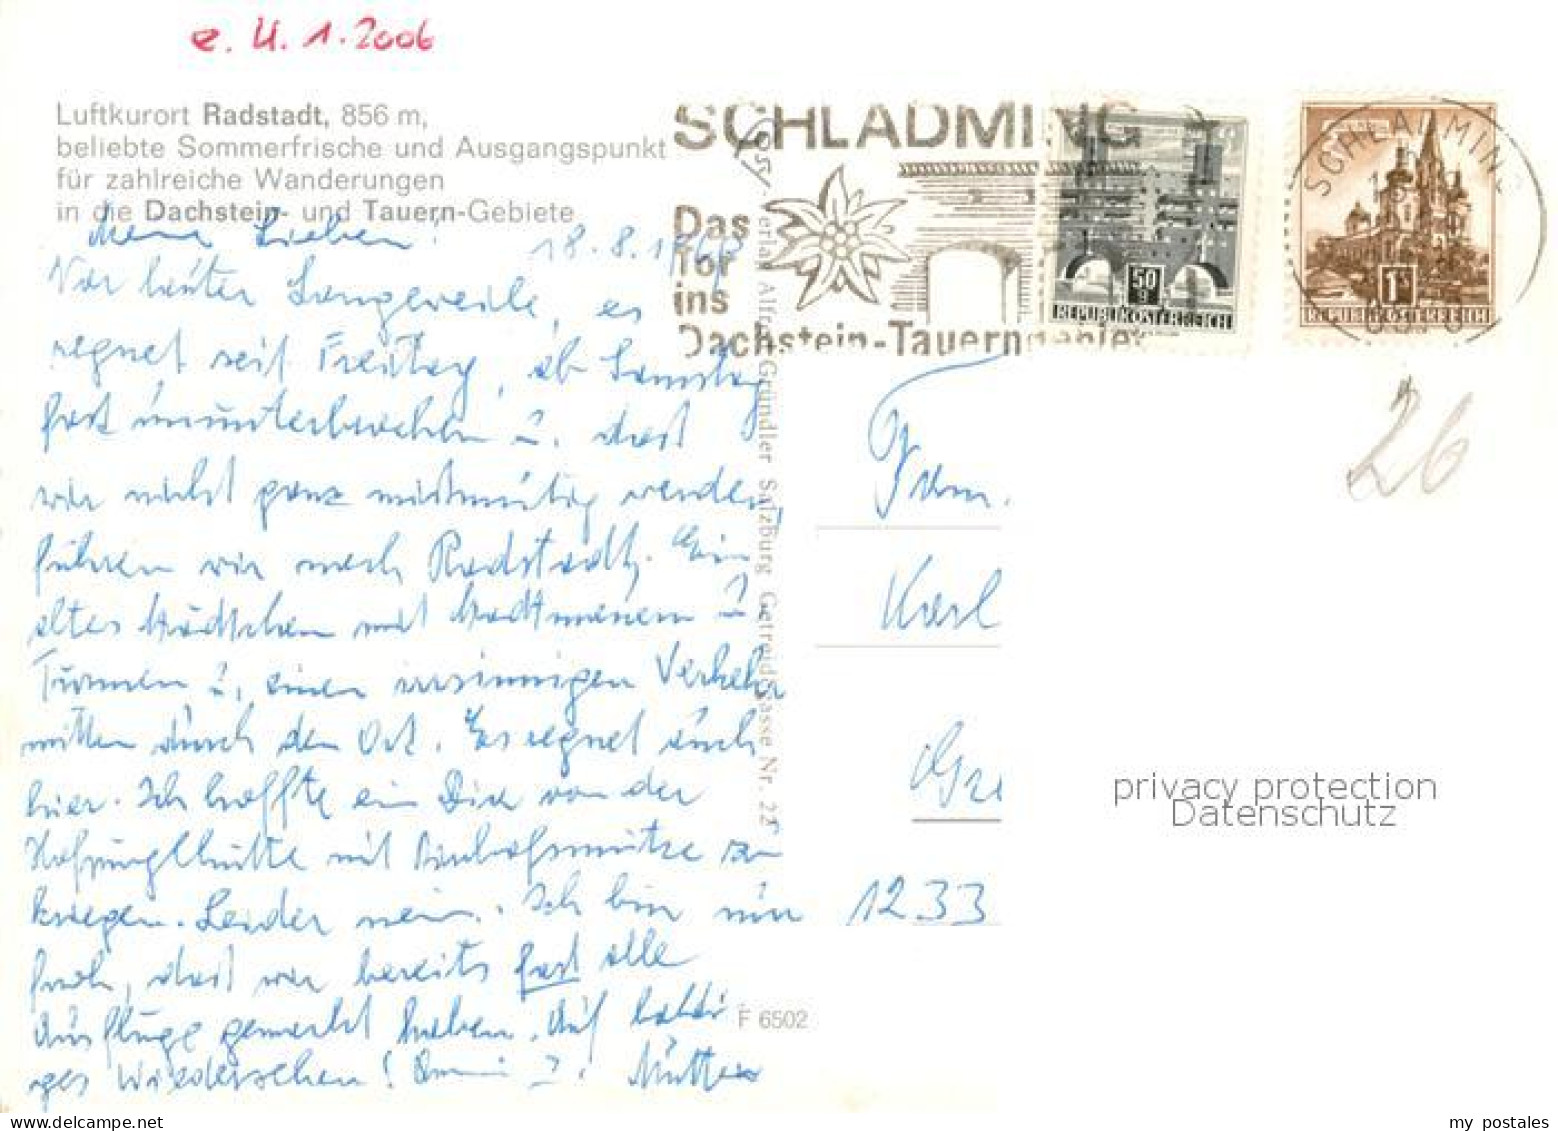 e. U. 1. 2006
Luftkurort Radstadt, 856 m,
beliebte Sommerfrische und Ausgangspunkt
für zahlreiche Wanderungen
in die Dachstein- und Tauern-Gebiete
SCHLADMING
Das
Tor
ins
Dachstein-Tauerngebiet
50 g
REPUBLIK ÖSTERREICH
1 S
REPUBLIK ÖSTERREICH
SCHLADMING
Meine Lieben!
18.8.19
Vor lauter Langeweile, es
regnet seit Freitag, ab Samstag
fast ununterbrochen u. dass
wir nicht ganz missmutig werden
führen wir nach Radstadt. Ein
altes Städtchen mit Stadtmauern u.
Türmen u. einen irrsinnigen Verkehr
mitten durch den Ort. Es regnet auch
hier. Ich hoffte ein Dia von der
Hofpürglhütte mit Bischofsmütze zu
kriegen. Leider nein. Ich bin nur
froh, dass wir bereits fast alle
Ausflüge gemacht haben. Auf baldi-
ges Wiedersehen! Omi u. Mutter
Verlag Alfred Gründler Salzburg Getreidegasse Nr. 22
F 6502
Fam.
Karl
1233
26
privacy protection
Datenschutz
my postales